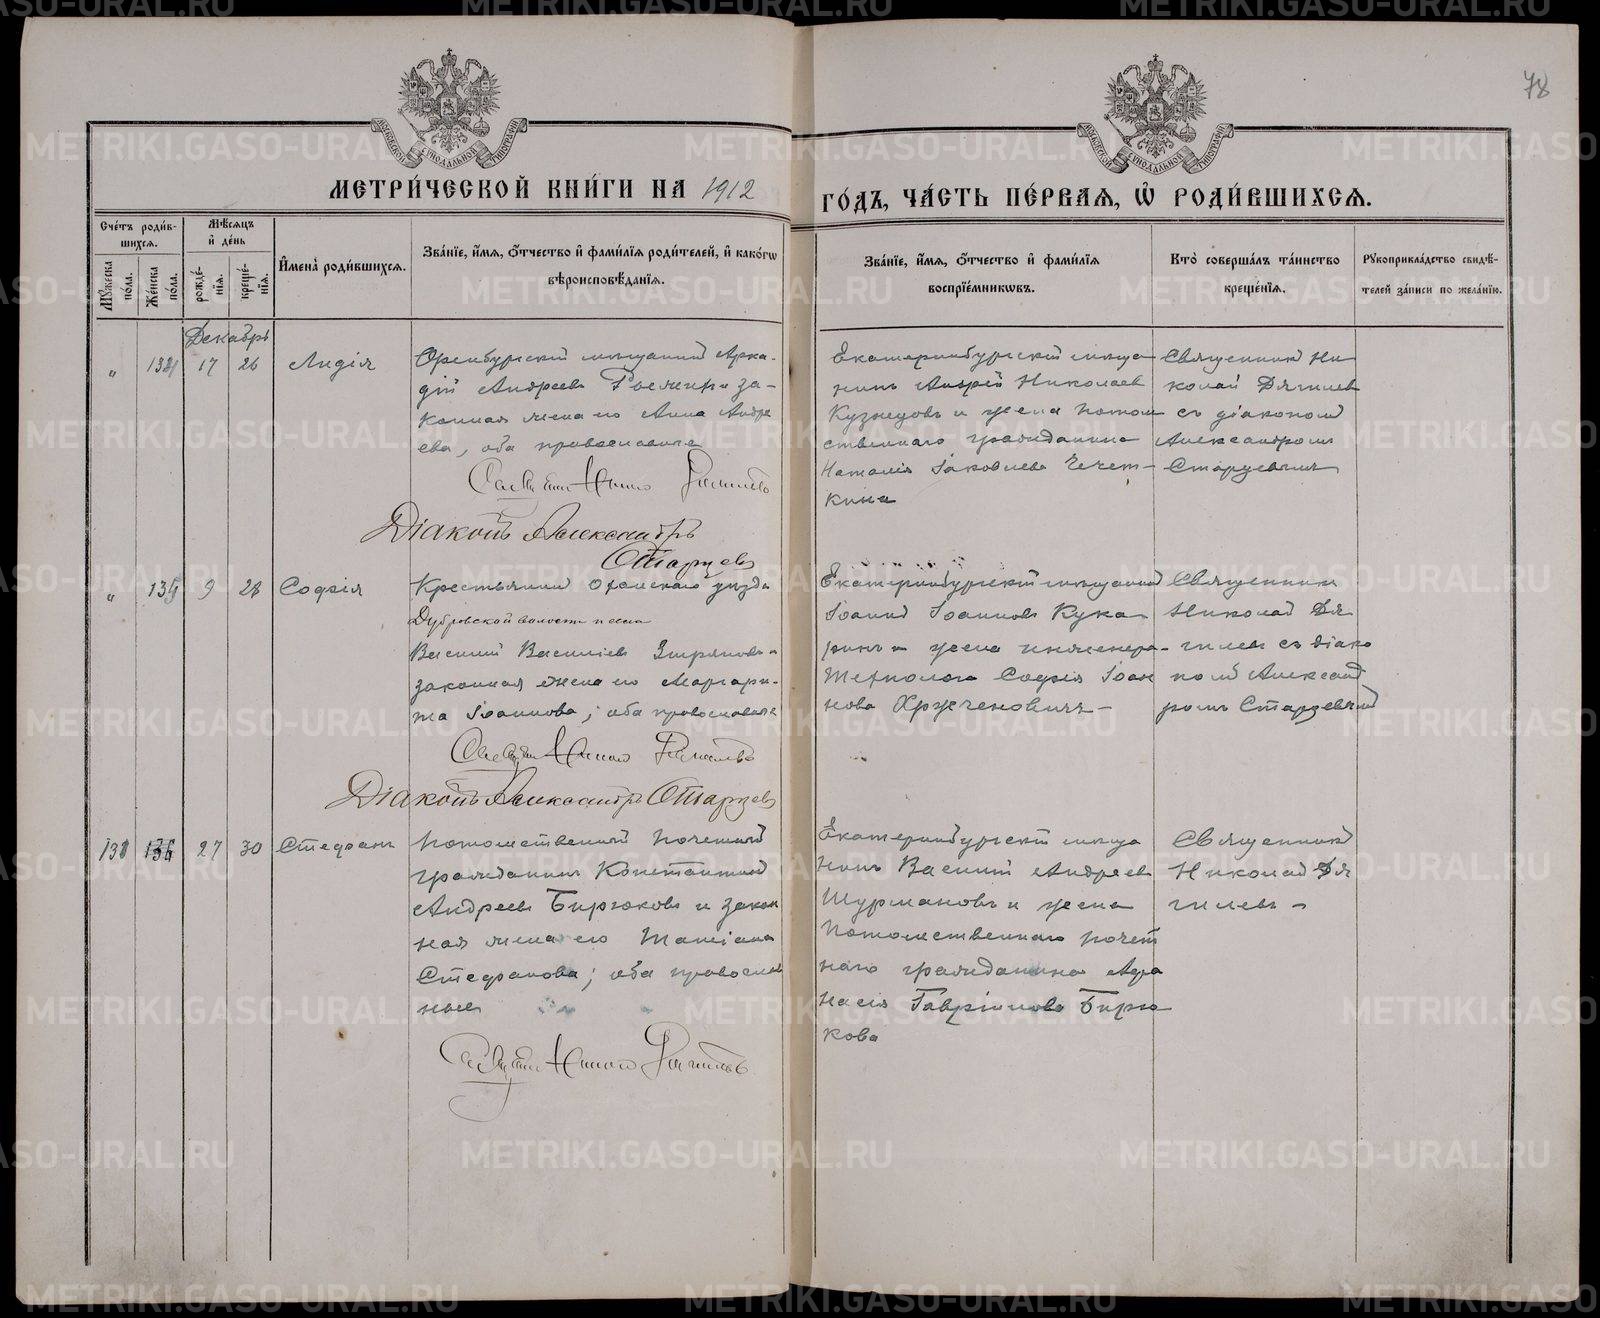 78
МОСКОВСКОЙ СѴНОДАЛЬНОЙ ТИПОГРАФІИ
МОСКОВСКОЙ СѴНОДАЛЬНОЙ ТИПОГРАФІИ
МЕТРИ́ЧЕСКОЙ КНИ́ГИ НА 1912
ГО́ДЪ, ЧА́СТЬ ПЕ́РВАѦ, Ѡ҆ РОДИ́ВШИХСѦ.
Сче́тъ роди́в-
шихсѧ.
Мѣ́сѧцъ
и҆ де́нь
Мꙋ́жеска
по́ла.
Же́нска
по́ла.
рожде́-
нїѧ.
креще́-
нїѧ.
И҆мена̀ роди́вшихсѧ.
Зва́нїе, и҆́мѧ, ѻ҆́тчество и҆ фами́лїѧ роди́телей, и҆ како́гѡ
вѣроисповѣ́данїѧ.
Зва́нїе, и҆́мѧ, ѻ҆́тчество и҆ фами́лїѧ
воспрїе́мникѡвъ.
Кто̀ соверша́лъ та́инство
креще́нїѧ.
Рꙋкоприкла́дство свидѣ́-
телей за́писи по жела́нїю.
Декабрь
" 17 26 Лидія
Оренбургскій мѣщанинъ Арка-
дій Андреевъ и за-
конная жена его Анна Андре
ева, оба православные
Священникъ Николай Дягилевъ
Діаконъ Александръ
Старцевъ
Екатеринбургскій мѣща
нинъ Андрей Николаевъ
Кузнецовъ и жена потом
ственнаго гражданина
Наталія Іаковлева Чечет-
кина
Священникъ Ни
колай Дягилевъ
съ діакономъ
Александромъ
Старцевымъ
" 9 28 Софія
Крестьянинъ Оханскаго уѣзда
Дубровской волости и села
Василій Василіевъ Зыряновъ и
законная жена его Маргари-
та Іоаннова; оба православные
Священникъ Николай Дягилевъ
Діаконъ Александръ Старцевъ
Екатеринбургскій мѣщанинъ
Іоаннъ Іоанновъ Кука
ринъ и жена инженера-
технолога Софія Іоан
нова Хрженовичъ -
Священникъ
Николай Дя
гилевъ съ діако
номъ Александ
ромъ Старцевымъ
138 136 27 30 Стефанъ
Потомственный почетный
гражданинъ Константинъ
Андреевъ Бирюковъ и закон
ная жена его Татіана
Стефанова; оба православ
ные
Священникъ Николай Дягилевъ
Екатеринбургскій мѣща
нинъ Василій Андреевъ
Шурмановъ и жена
потомственнаго почет
наго гражданина Афа
насія Гавріилова Бирю
кова
Священникъ
Николай Дя
гилевъ -
METRIKI.GASO-URAL.RU